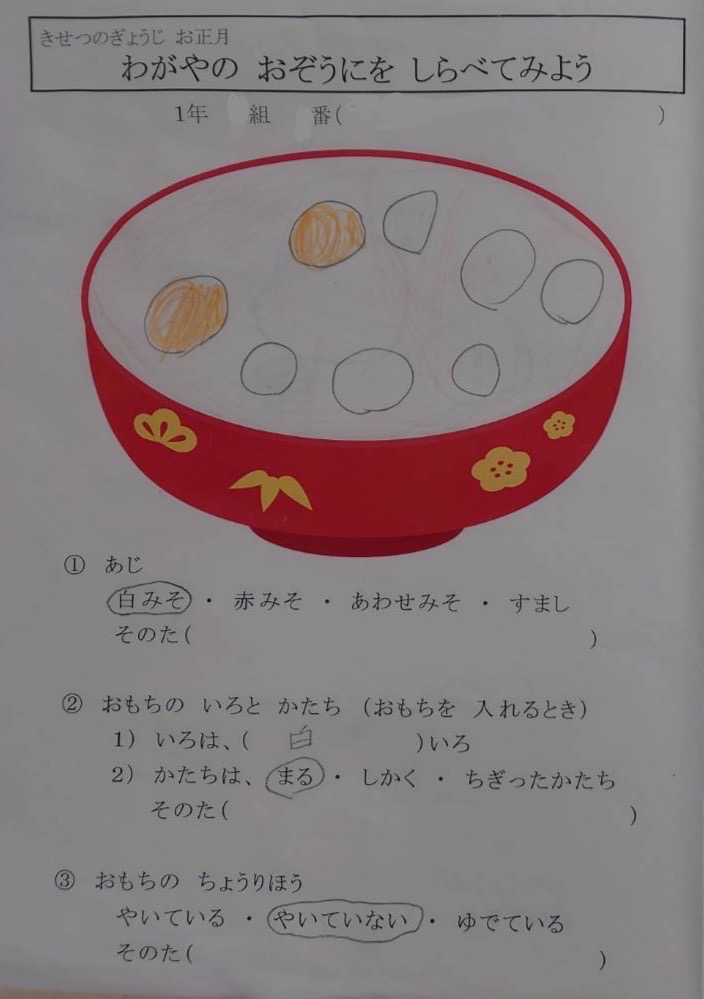 きせつのぎょうじ お正月
わがやの おぞうにを しらべてみよう
1年 組 番( )
① あじ
白みそ ・ 赤みそ ・ あわせみそ ・ すまし
そのた( )
② おもちの いろと かたち (おもちを 入れるとき)
1) いろは、( 白 )いろ
2) かたちは、 まる ・ しかく ・ ちぎったかたち
そのた( )
③ おもちの ちょうりほう
やいている ・ やいていない ・ ゆでている
そのた( )